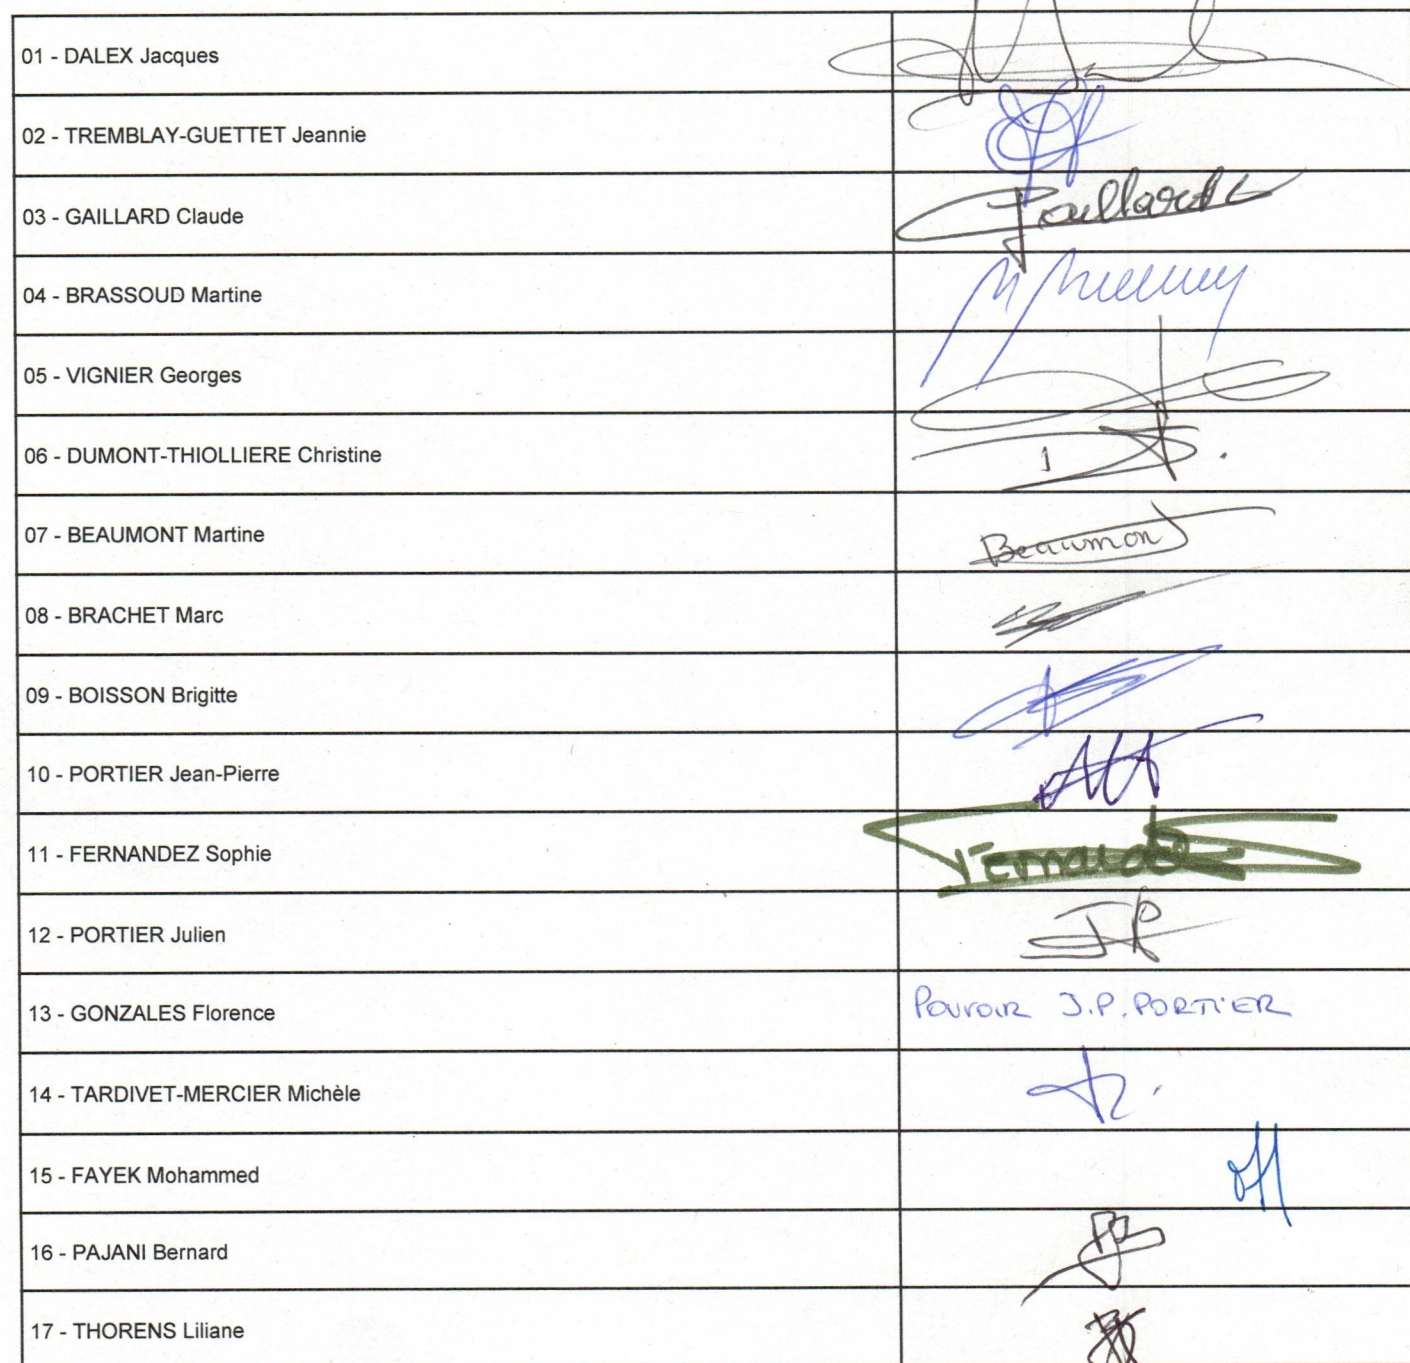 01 - DALEX Jacques
02 - TREMBLAY-GUETTET Jeannie
03 - GAILLARD Claude Gaillard
04 - BRASSOUD Martine
05 - VIGNIER Georges
06 - DUMONT-THIOLLIERE Christine
07 - BEAUMONT Martine Beaumont
08 - BRACHET Marc
09 - BOISSON Brigitte
10 - PORTIER Jean-Pierre
11 - FERNANDEZ Sophie
12 - PORTIER Julien JP
13 - GONZALES Florence POUVOIR J.P. PORTIER
14 - TARDIVET-MERCIER Michèle
15 - FAYEK Mohammed
16 - PAJANI Bernard
17 - THORENS Liliane